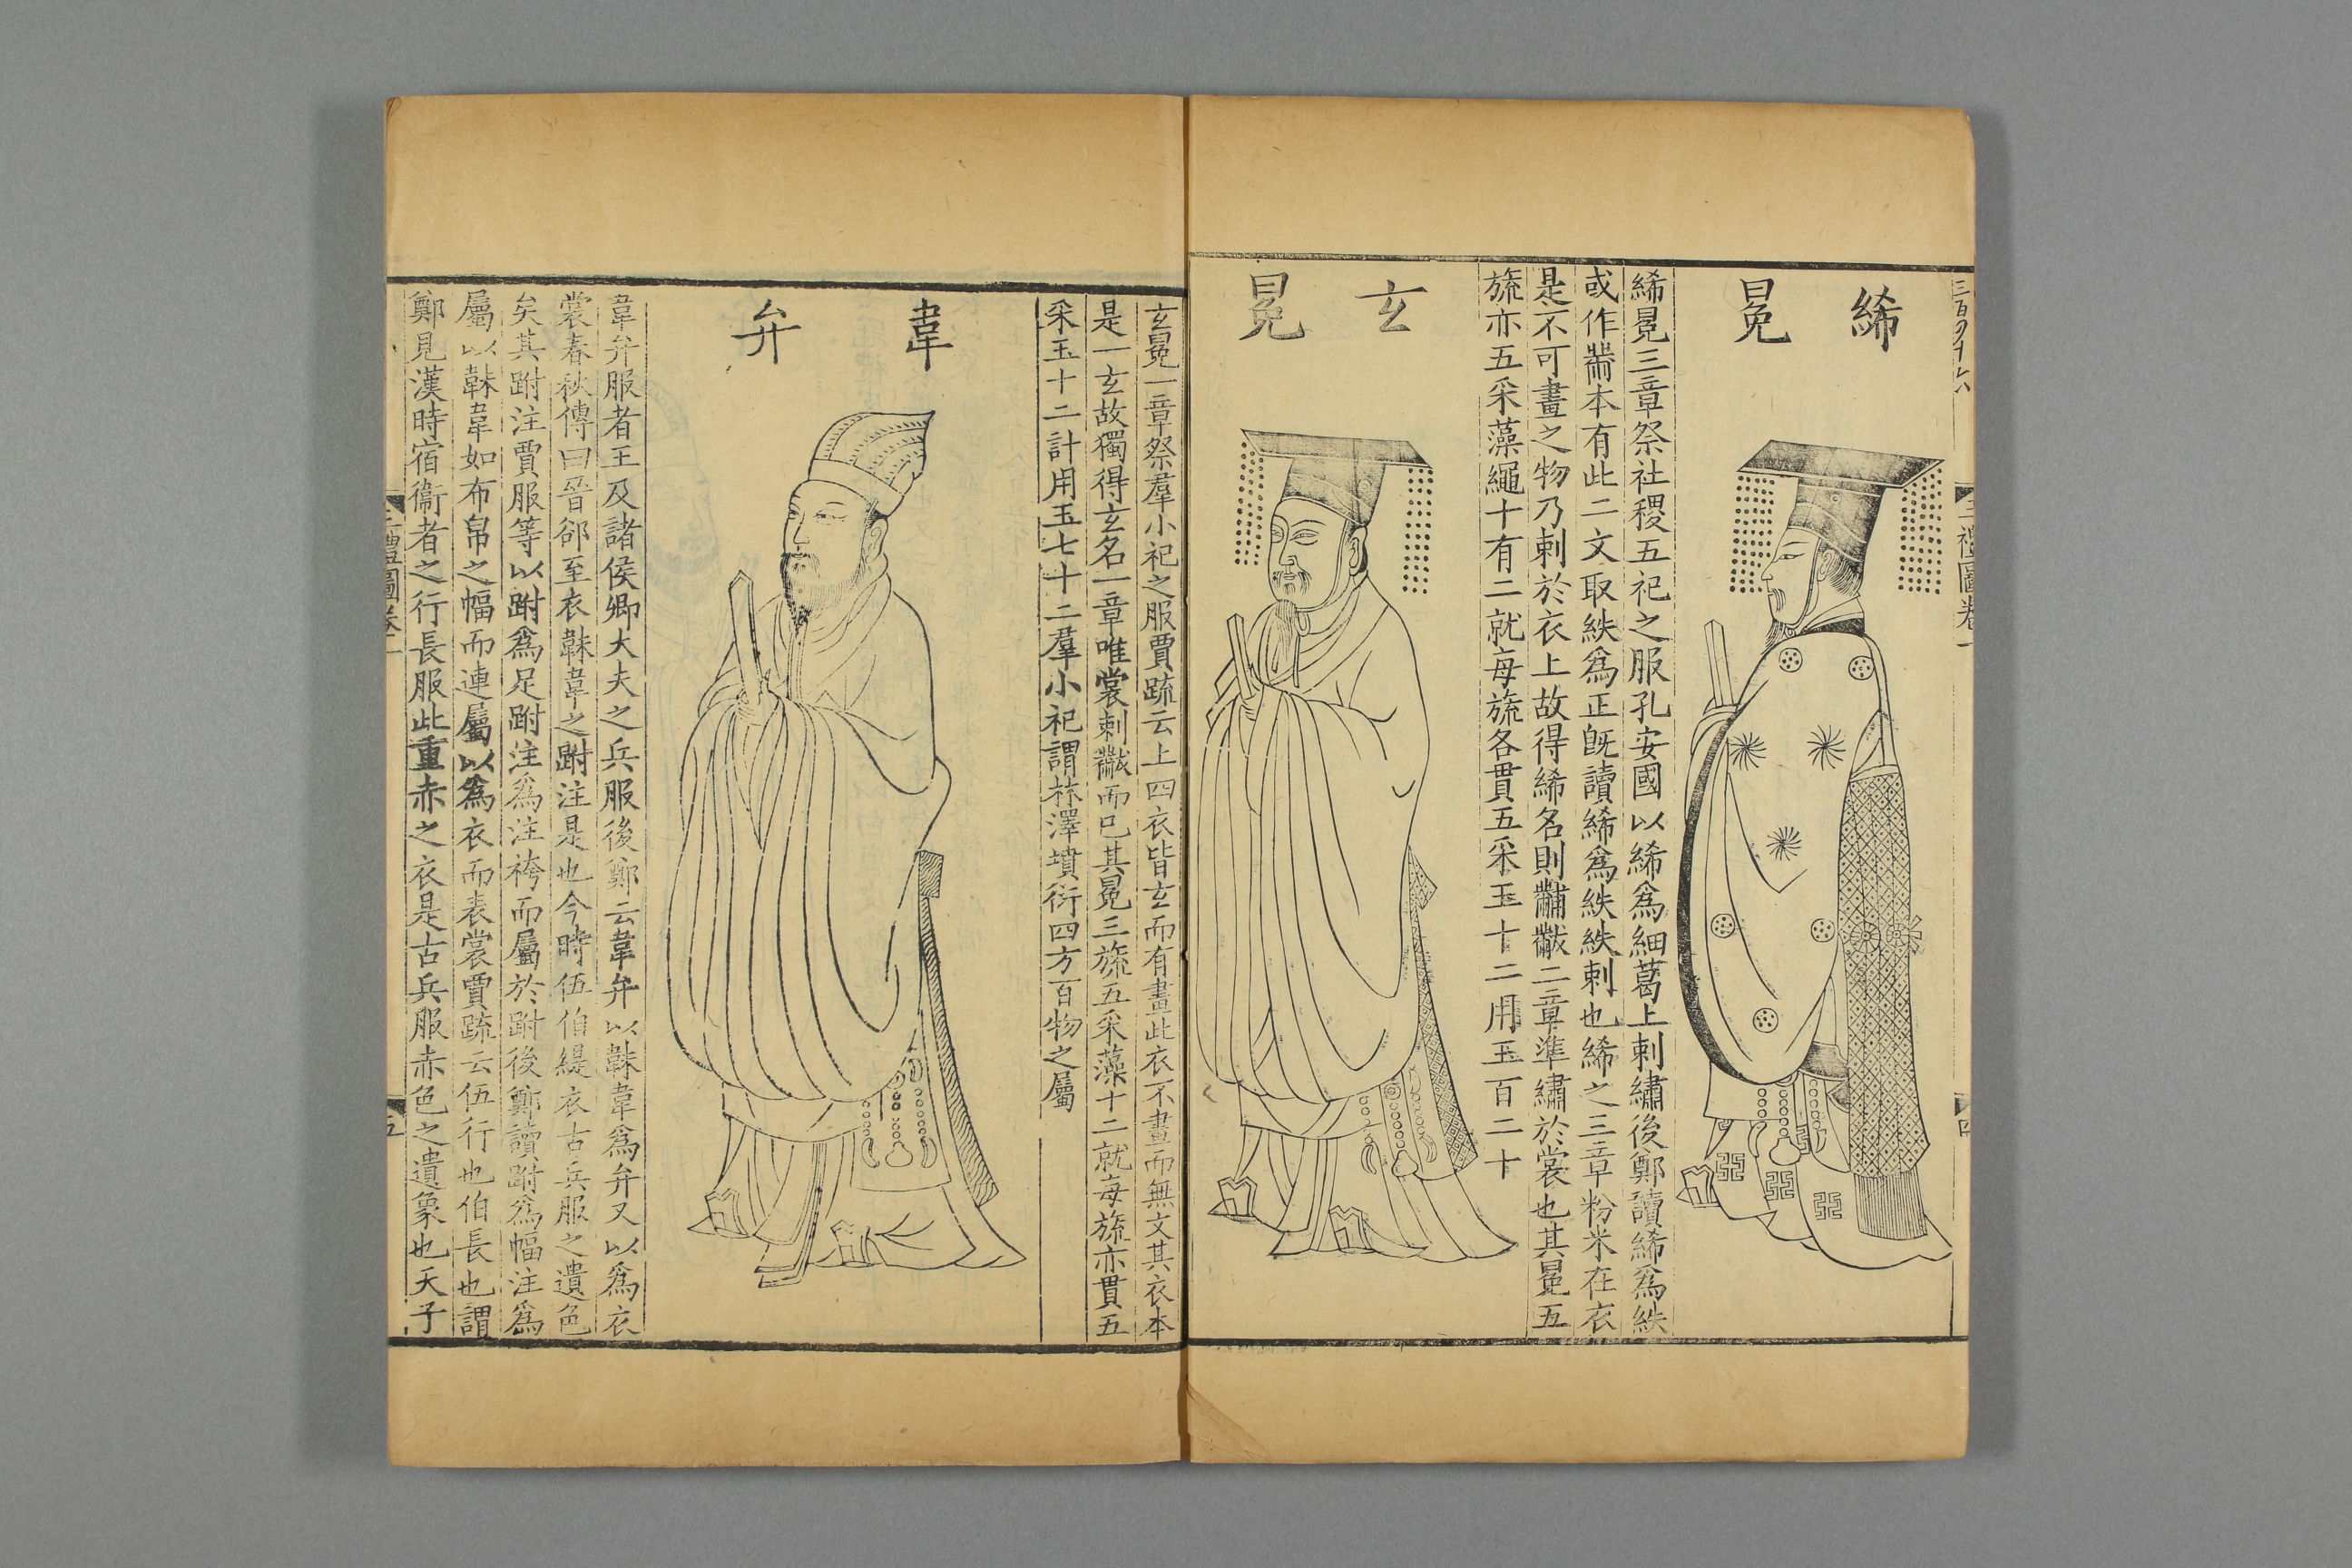 絺冕
絺冕三章祭社稷五祀之服孔安國以絺爲細葛上刺繡後鄭讀絺爲紩
或作黹本有此二文取紩爲正旣讀絺爲紩紩刺也絺之三章粉米在衣
是不可畫之物乃刺於衣上故得絺名則黼黻二章準繡於裳也其冕五
旒亦五采藻繩十有二就每旒各貫五采玉十二用玉百二十
玄冕
玄冕一章祭羣小祀之服賈疏云上四衣皆玄而有畫此衣不畫而無文其衣本
是一玄故獨得玄名一章唯裳刺黻而已其冕三旒五采藻十二就每旒亦貫五
采玉十二計用玉七十二羣小祀謂林澤墳衍四方百物之屬
韋弁
韋弁服者王及諸侯卿大夫之兵服後鄭云韋弁以韎韋爲弁又以爲衣
裳春秋傳曰晉郤至衣韎韋之跗注是也今時伍伯緹衣古兵服之遺色
矣其跗注賈服等以跗爲足跗注爲注袴而屬於跗後鄭讀跗爲幅注爲
屬以韎韋如布帛之幅而連屬以爲衣而表裳賈疏云伍行也伯長也謂
鄭見漢時宿衞者之行長服此重赤之衣是古兵服赤色之遺象也天子
三禮圖卷一
四
三禮圖卷一
五